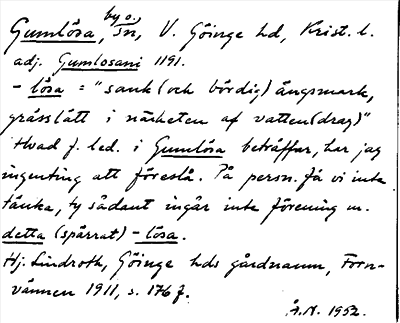 Gumlösa, by o. sn, V. Göinge hd, Krist. l.
adj. Gumlosani 1191.
- lösa = "sank (och bördig) ängsmark,
grässlätt i närheten af vatten(drag)"
Hvad f. led. i Gumlösa beträffar, har jag
ingenting att föreslå. På persn. få vi inte
tänka, ty sådant ingår inte förening m.
detta (spärrat) - lösa.
Hj. Lindroth, Göinge hds gårdnamn, Forn-
vännen 1911, s. 176 f.
Å.N. 1952.